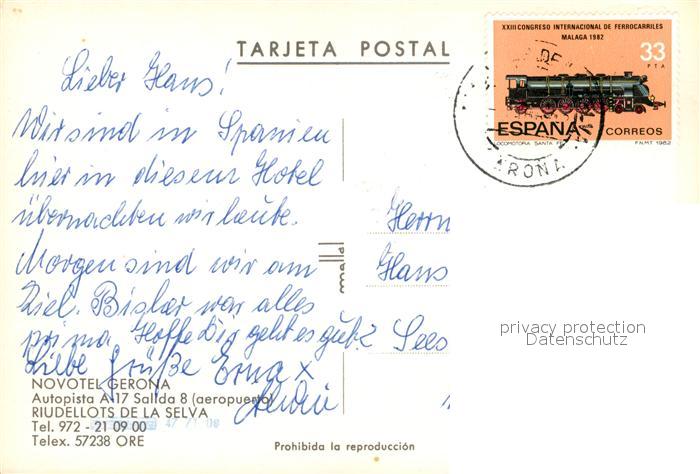 TARJETA POSTAL
XXIII CONGRESO INTERNACIONAL DE FERROCARRILES
MALAGA 1982
33
PTA
ESPAÑA CORREOS
LOCOMOTORA SANTA FE F.N.M.T. 1982
Lieber Hans!
Wir sind in Spanien
hier in diesem Hotel
übernachten wir heute.
Morgen sind wir am
Ziel. Bisher war alles
prima. Hoffe Dir geht es gut?
Liebe Grüße Erna x
Herrn
Hans
Sees
privacy protection
Datenschutz
NOVOTEL GERONA
Autopista A-17 Salida 8 (aeropuerto)
RIUDELLOTS DE LA SELVA
Tel. 972 - 21 09 00
Telex. 57238 ORE
Prohibida la reproducción